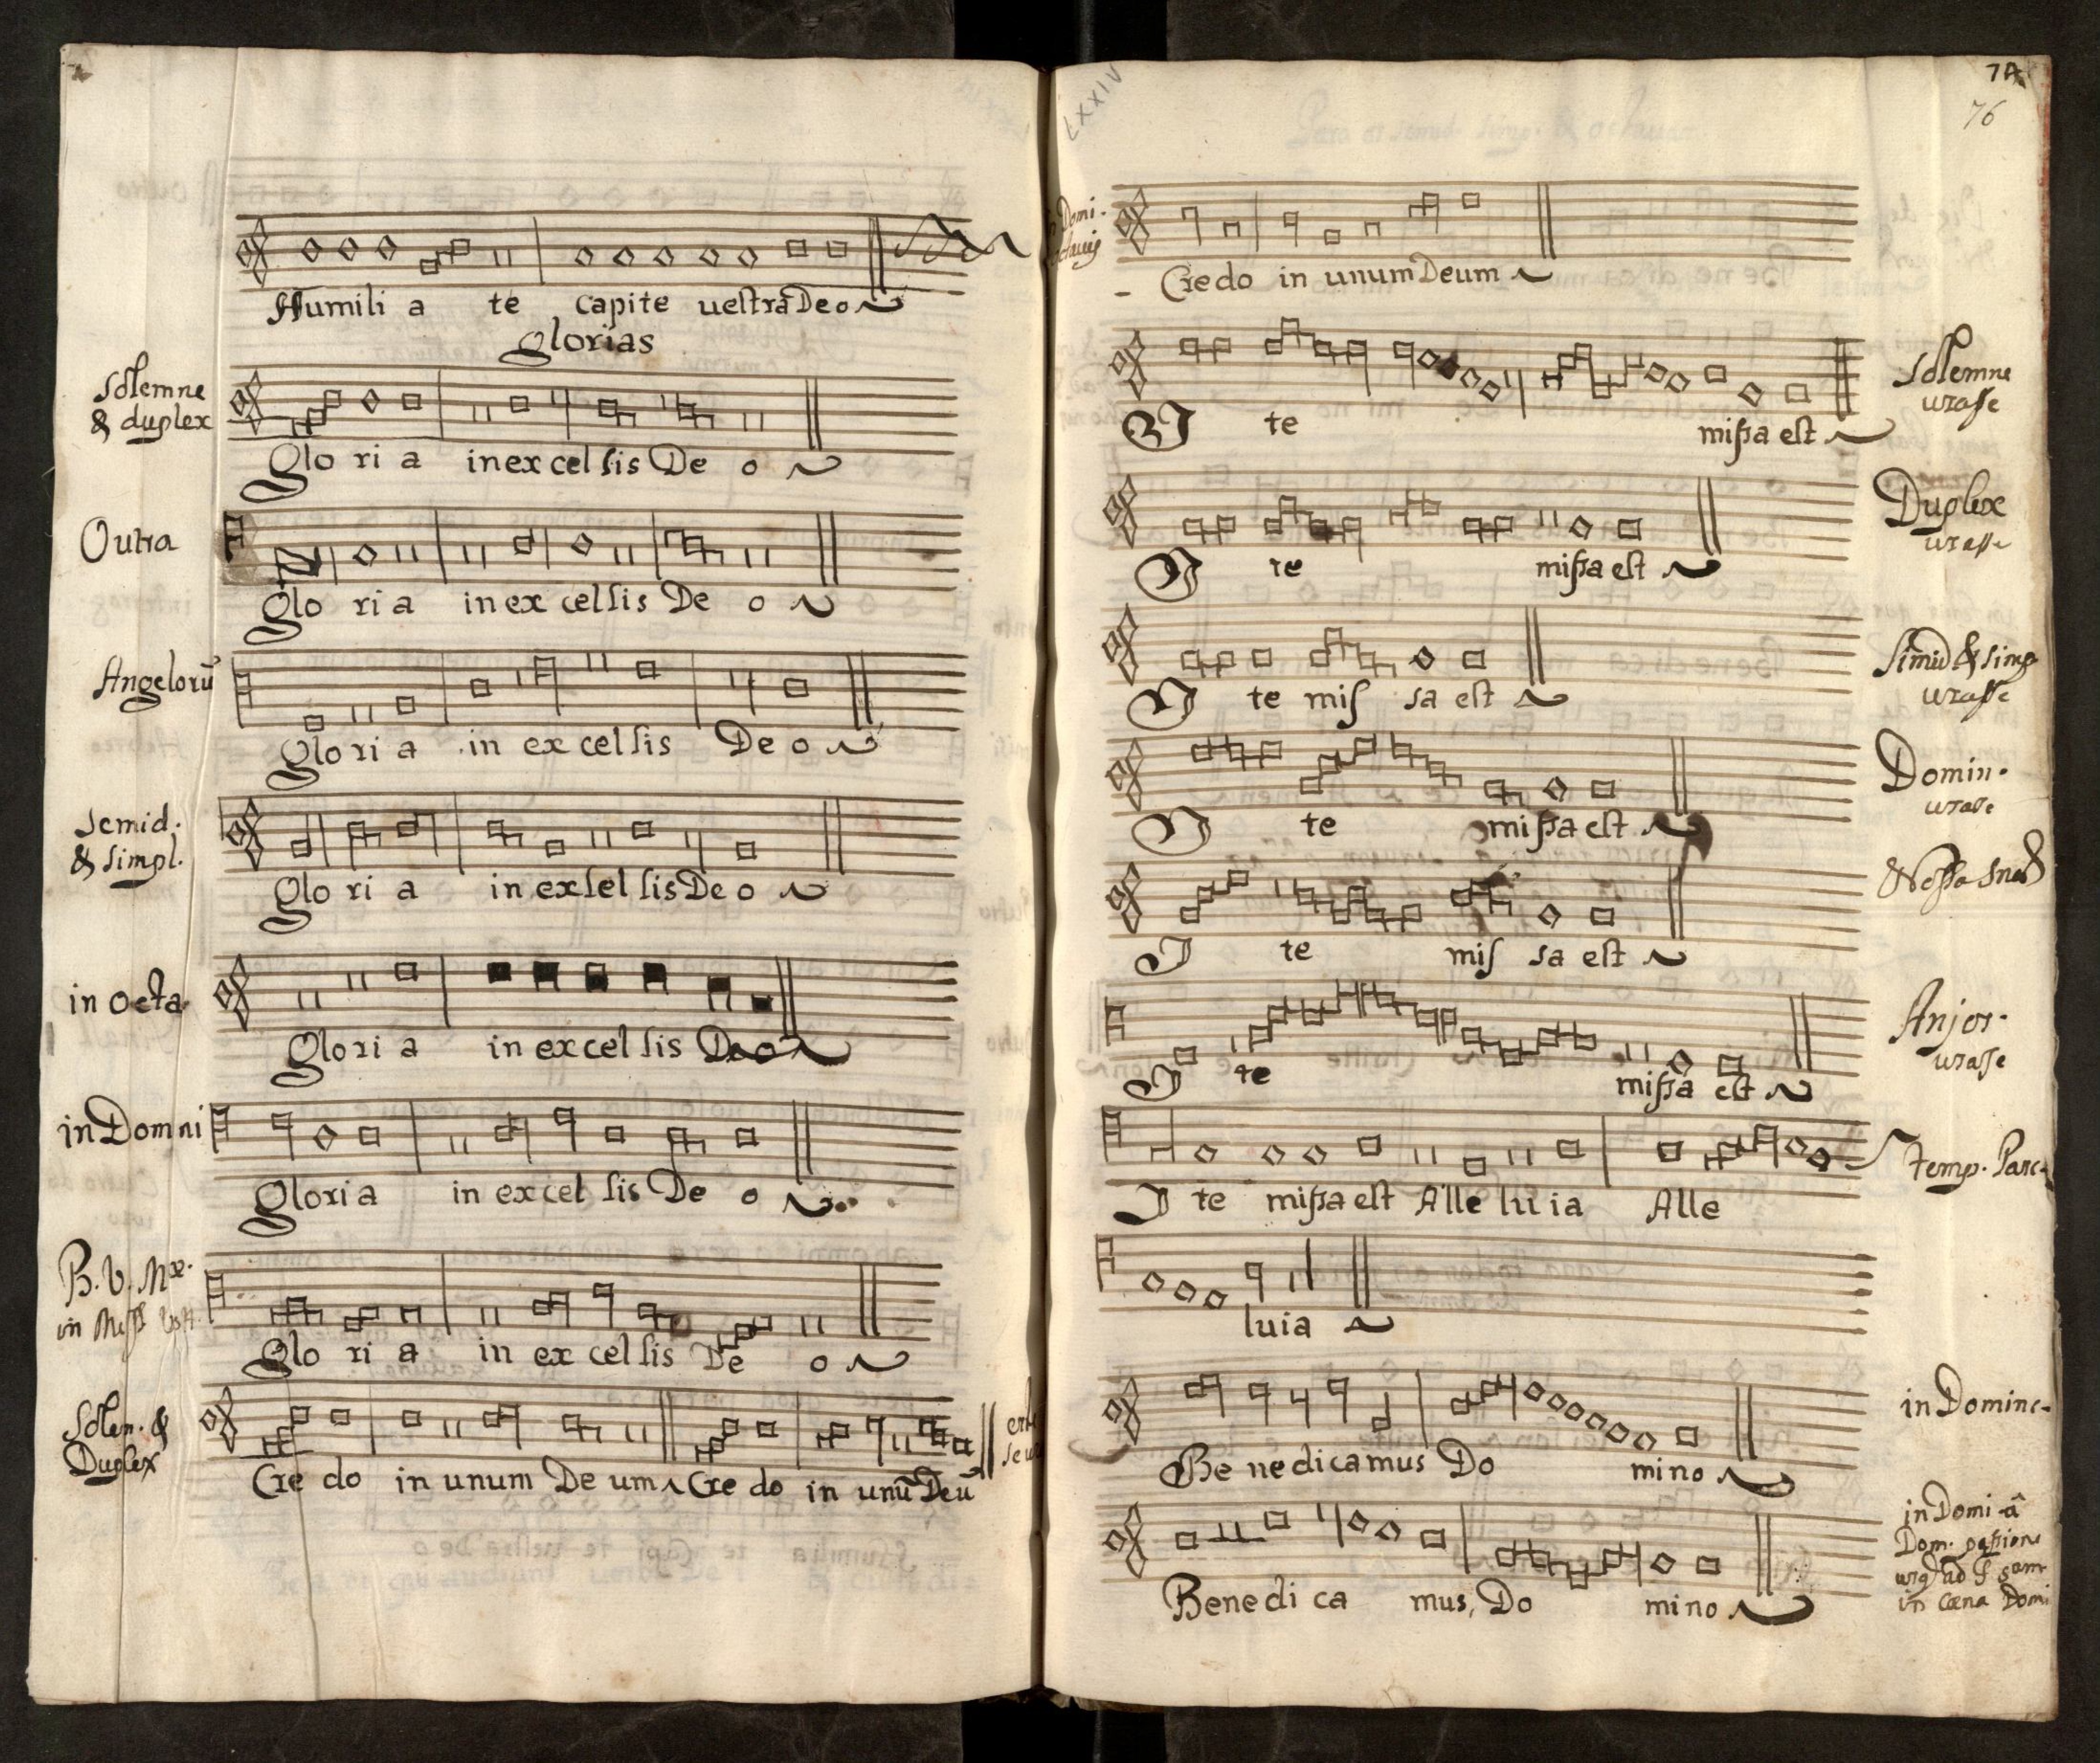 Humili a te capite uestrã Deo
Glorias
Solemne & duplex
Glo ri a in ex cel sis De o
Outra
Glo ri a in ex cel sis De o
Angelorũ
Glo ri a in ex cel sis De o
Semid. & simpl.
Glo ri a in exsel sis De o
in octa.
Glo ri a in ex cel sis Deo
in Domni
Gloria in ex cel sis De o
B. V. Mæ.
in Miss
Glo ri a in ex cel sis De o
Solen. & Duplex
Cre do in unum De um Cre do in unũ Deũ
LXXIV
74
76
Domi.
Credo in unum Deum
Solemne
urasse
I te missa est
Duplex
urasse
I te missa est
Simid & simp
urasse
I te mis sa est
Domin.
urasse
I te missa est
Nossa Snrã
I te mis sa est
Anjos.
urasse
I te missa est
temp. Pasc.
I te missa est Alle lu ia Alle
luia
in Dominc.
Be ne dicamus Do mino
in Domi â
Dom. passione
in cœna Domi
Bene di ca mus, Do mino